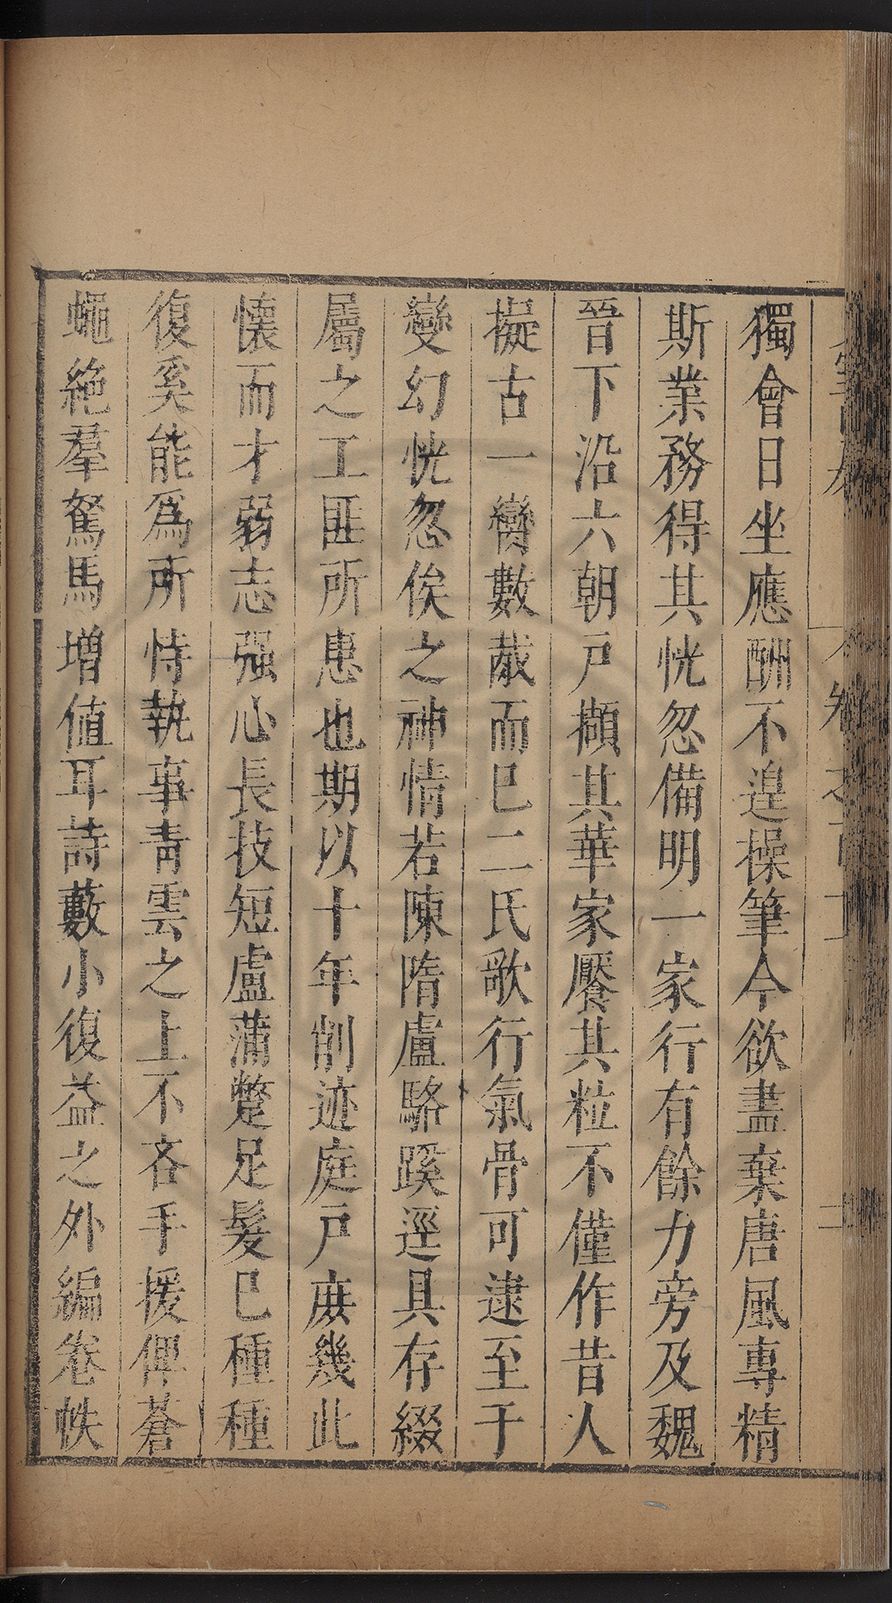 獨會日坐應酬不遑操筆今欲盡棄唐風專精
斯業務得其恍忽備明一家行有餘力旁及魏
晉下沿六朝戶擷其華家饜其粒不僅作昔人
擬古一臠數胾而已二氏歌行氣骨可逮至于
變幻恍忽俟之神情若陳隋盧駱蹊逕具存綴
屬之工匪所患也期以十年削迹庭戶庶幾此
懷而才弱志强心長技短盧蒲蹩足髮已種種
復奚能爲所恃執事靑雲之上不吝手援俾蒼
蠅絶羣駑馬增値耳詩藪小復益之外編卷帙